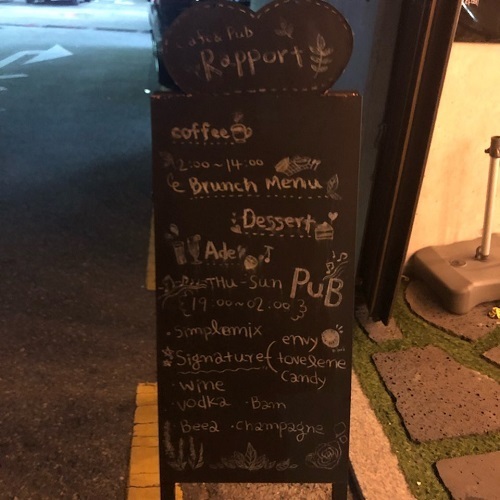 Cafe & Pub
Rapport
coffee
12:00~14:00
Brunch Menu
Dessert
Ade
THU-Sun PuB
{19:00~02:00}
·simplemix
Signature envy
candy
·wine
·vodka ·Bam
·Beea ·champagne